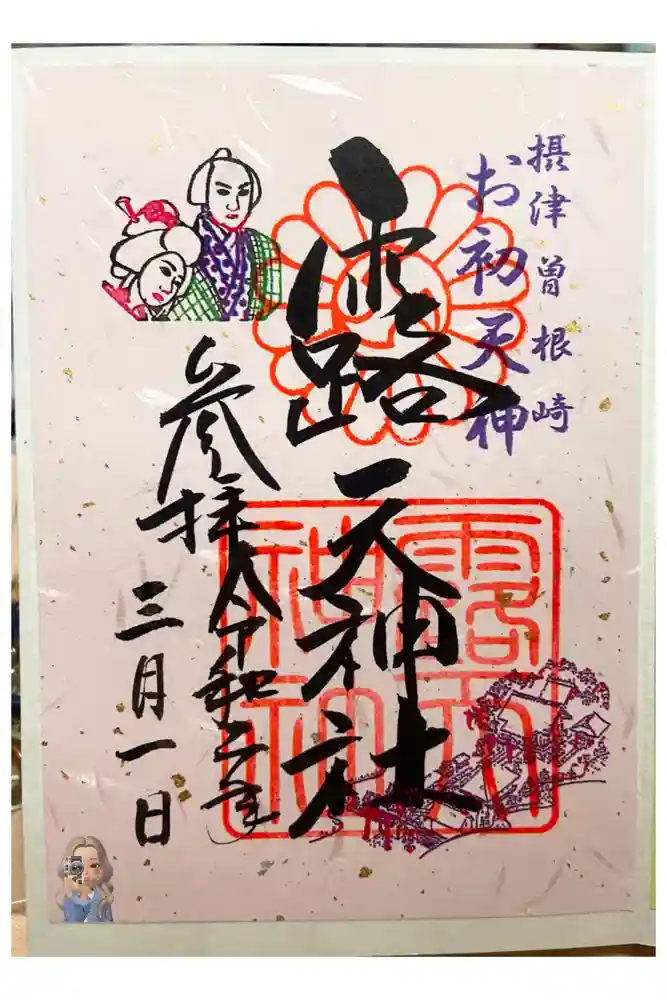 摂津曽根崎
お初天神
露天神社
参拝 令和年
三月一日
露天
神社